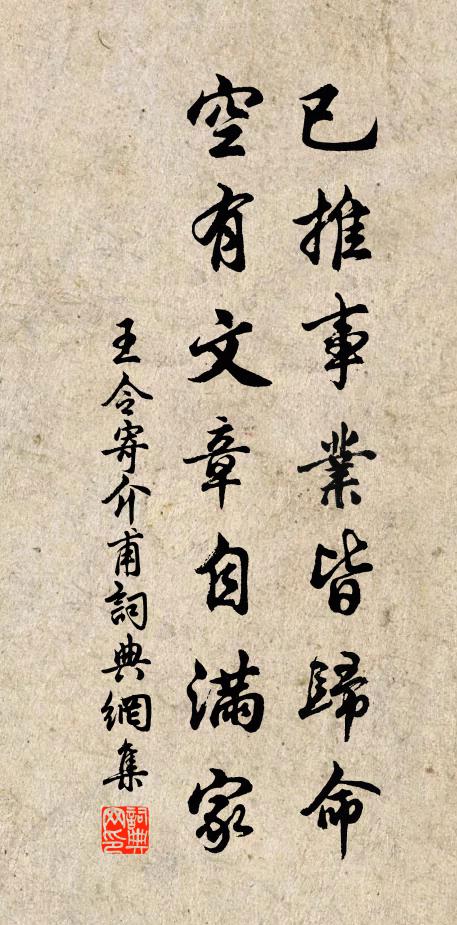 已推事業皆歸命
空有文章自滿家
王令寄介甫詞典網集
詞典網印